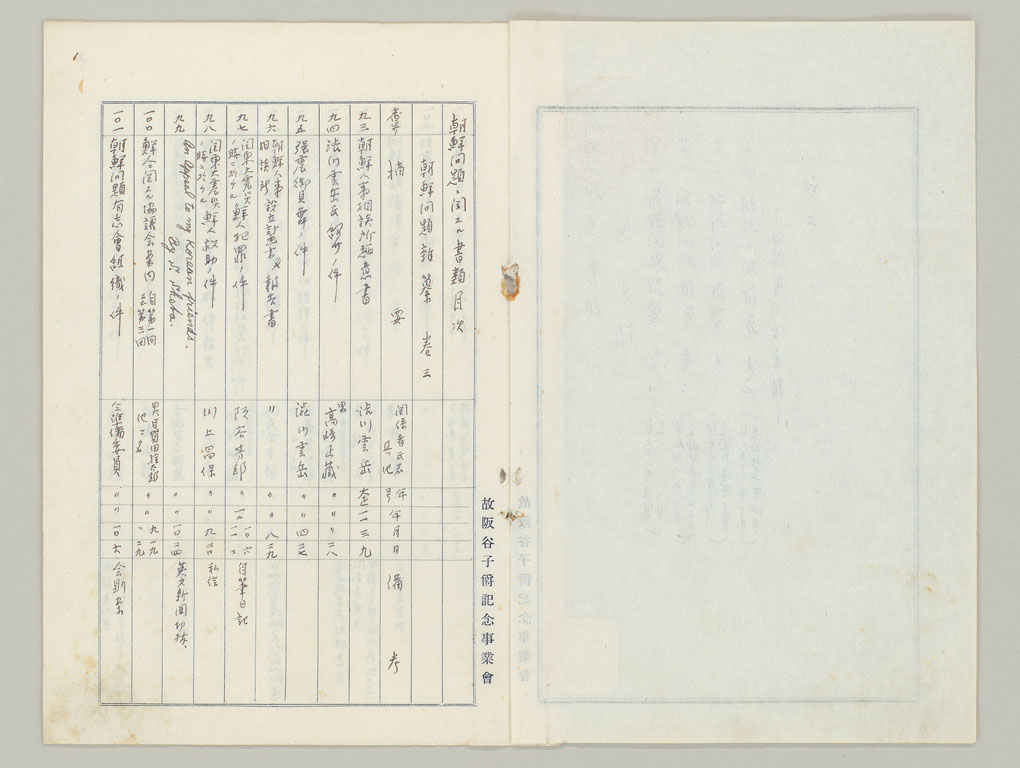 朝鮮問題ニ関スル書類目次
朝鮮問題雑纂 巻三
番号 摘要 関係者氏名其他 年号 年 月 日 備考
九三 朝鮮人事相談所趣意書 渋川雲岳 大正 一二 三 九
九四 渋川雲岳氏紹介ノ件 男 高崎正蔵 〃 〃 〃 二八
九五 強震御見舞ノ件 渋川雲岳 〃 〃 四 二七
九六 朝鮮人事相談所設立 報告書 〃 〃 〃 八 二九
九七 関東大震災ノ時ニ於ケル鮮人犯罪ノ件 阪谷芳郎 〃 自筆日記
九八 関東大震災ノ時ニ於ケル鮮人救助ノ件 川上常保 〃 〃 九 二〇 私信
九九 An Appeal to my Korean friends. By S. Sheba. 〃 〃 一〇 二四 英文新聞切抜、
一〇〇 鮮人ニ関スル協議会案内 自第一回至第三回 男 他二名 〃 〃 九 一九 〃 二九
一〇一 朝鮮問題有志會組織ノ件 仝準備委員 〃 〃 一〇 六 会則案
故阪谷子爵記念事業會